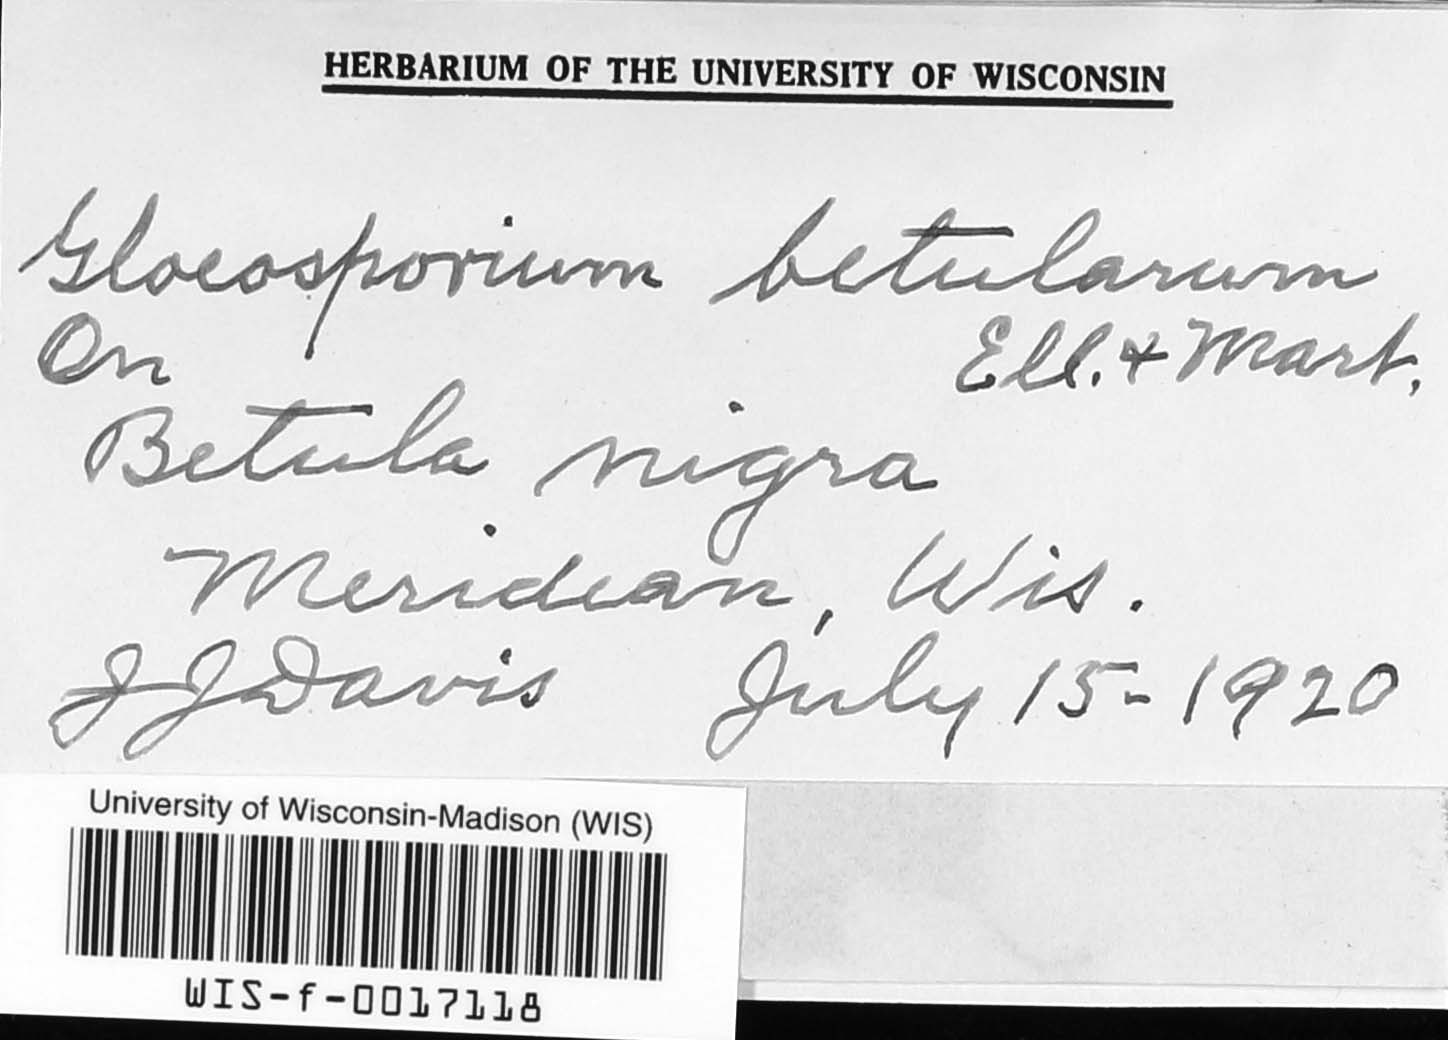 HERBARIUM OF THE UNIVERSITY OF WISCONSIN
Gloeosporium betularum
Ell. & Mart.
On
Betula nigra
Meridean, Wis.
J J Davis July 15-1920
University of Wisconsin-Madison (WIS)
WIS-f-0017118